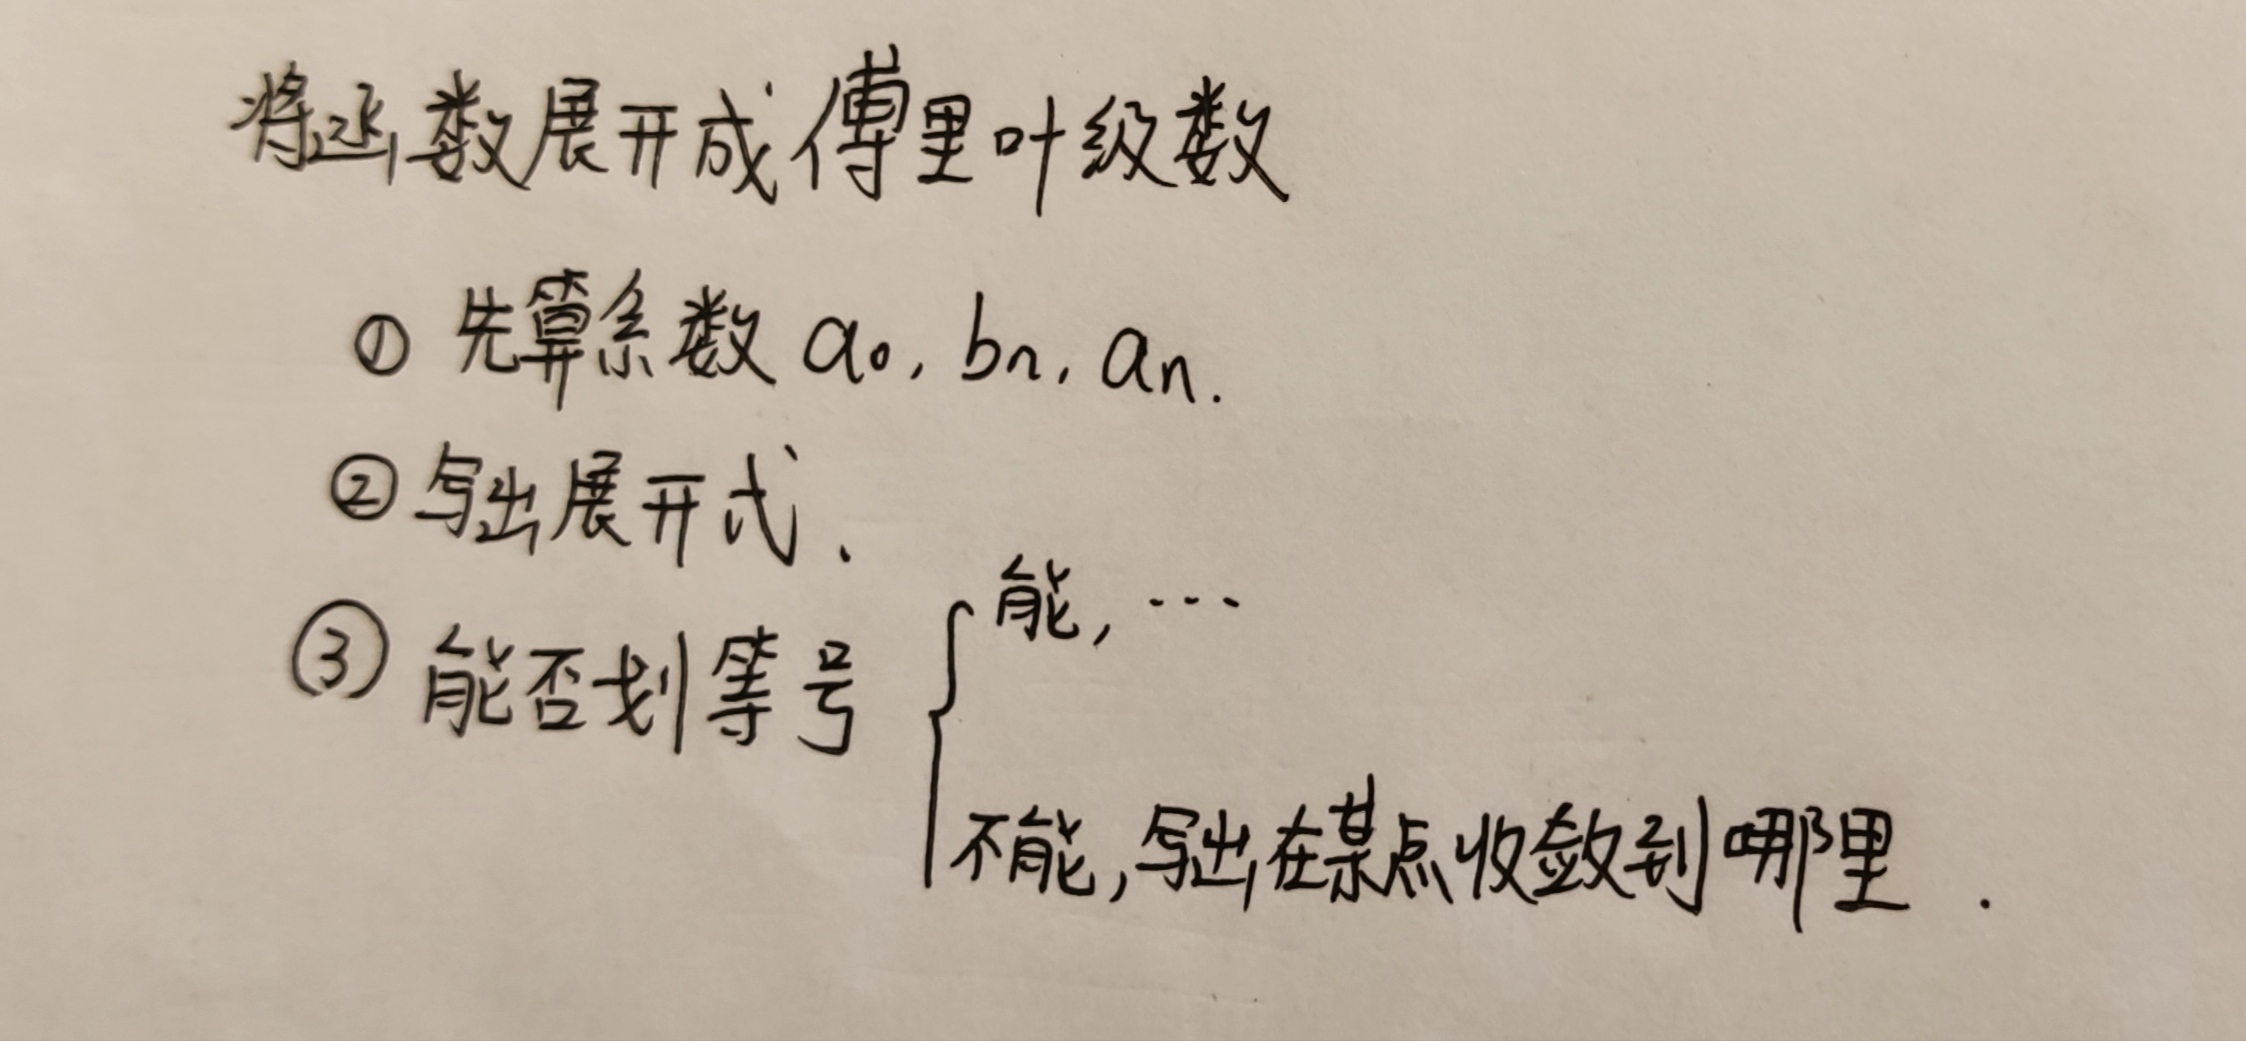 将函数展开成傅里叶级数
① 先算系数 a₀, bₙ, aₙ.
② 写出展开式.
③ 能否划等号
能, ...
不能, 写出在某点收敛到哪里.